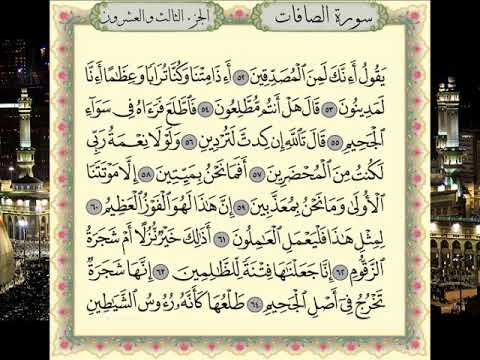 سورة الصافات
الجزء الثالث والعشرون
يَقُولُ أَءِنَّكَ لَمِنَ ٱلْمُصَدِّقِينَ ٥٢ أَءِذَا مِتْنَا وَكُنَّا تُرَابًا وَعِظَٰمًا أَءِنَّا
لَمَدِينُونَ ٥٣ قَالَ هَلْ أَنتُم مُّطَّلِعُونَ ٥٤ فَٱطَّلَعَ فَرَءَاهُ فِى سَوَآءِ
ٱلْجَحِيمِ ٥٥ قَالَ تَٱللَّهِ إِن كِدتَّ لَتُرْدِينِ ٥٦ وَلَوْلَا نِعْمَةُ رَبِّى
لَكُنتُ مِنَ ٱلْمُحْضَرِينَ ٥٧ أَفَمَا نَحْنُ بِمَيِّتِينَ ٥٨ إِلَّا مَوْتَتَنَا
ٱلْأُولَىٰ وَمَا نَحْنُ بِمُعَذَّبِينَ ٥٩ إِنَّ هَٰذَا لَهُوَ ٱلْفَوْزُ ٱلْعَظِيمُ ٦٠
لِمِثْلِ هَٰذَا فَلْيَعْمَلِ ٱلْعَٰمِلُونَ ٦١ أَذَٰلِكَ خَيْرٌ نُّزُلًا أَمْ شَجَرَةُ
ٱلزَّقُّومِ ٦٢ إِنَّا جَعَلْنَٰهَا فِتْنَةً لِّلظَّٰلِمِينَ ٦٣ إِنَّهَا شَجَرَةٌ
تَخْرُجُ فِىٓ أَصْلِ ٱلْجَحِيمِ ٦٤ طَلْعُهَا كَأَنَّهُۥ رُءُوسُ ٱلشَّيَٰطِينِ